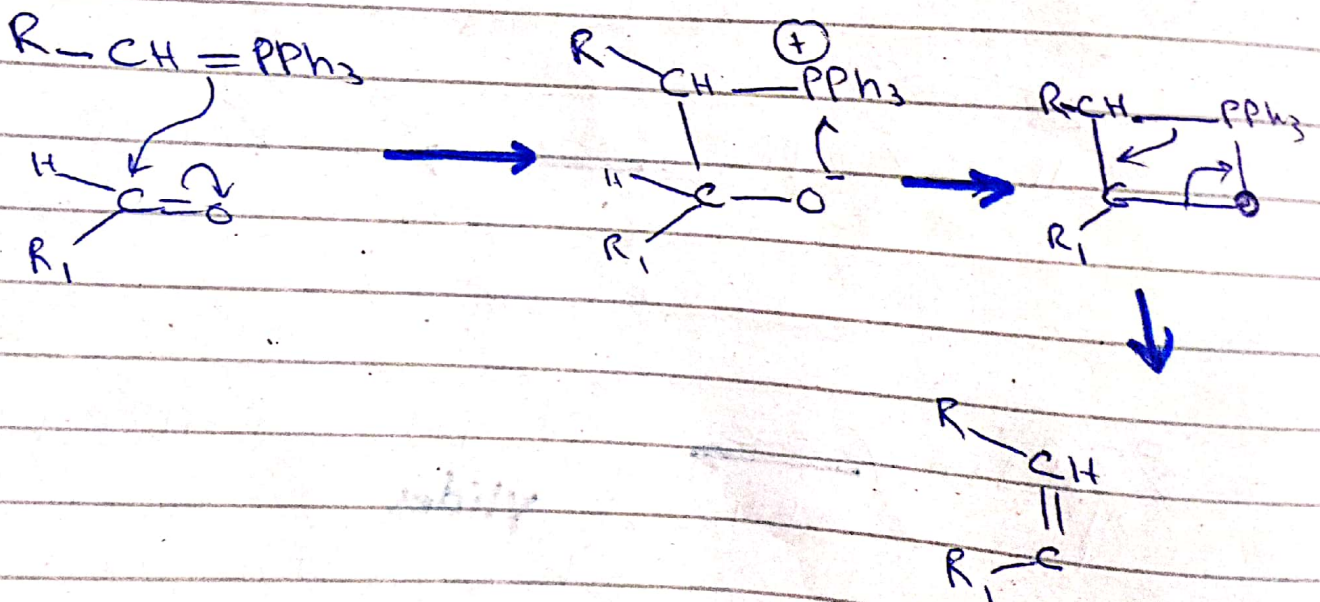 R-CH=PPh3
H
C=O
R1
R
CH-PPh3
+
H
C-O-
R1
R-CH-PPh3
C-O
R1
R
CH
||
R1-C